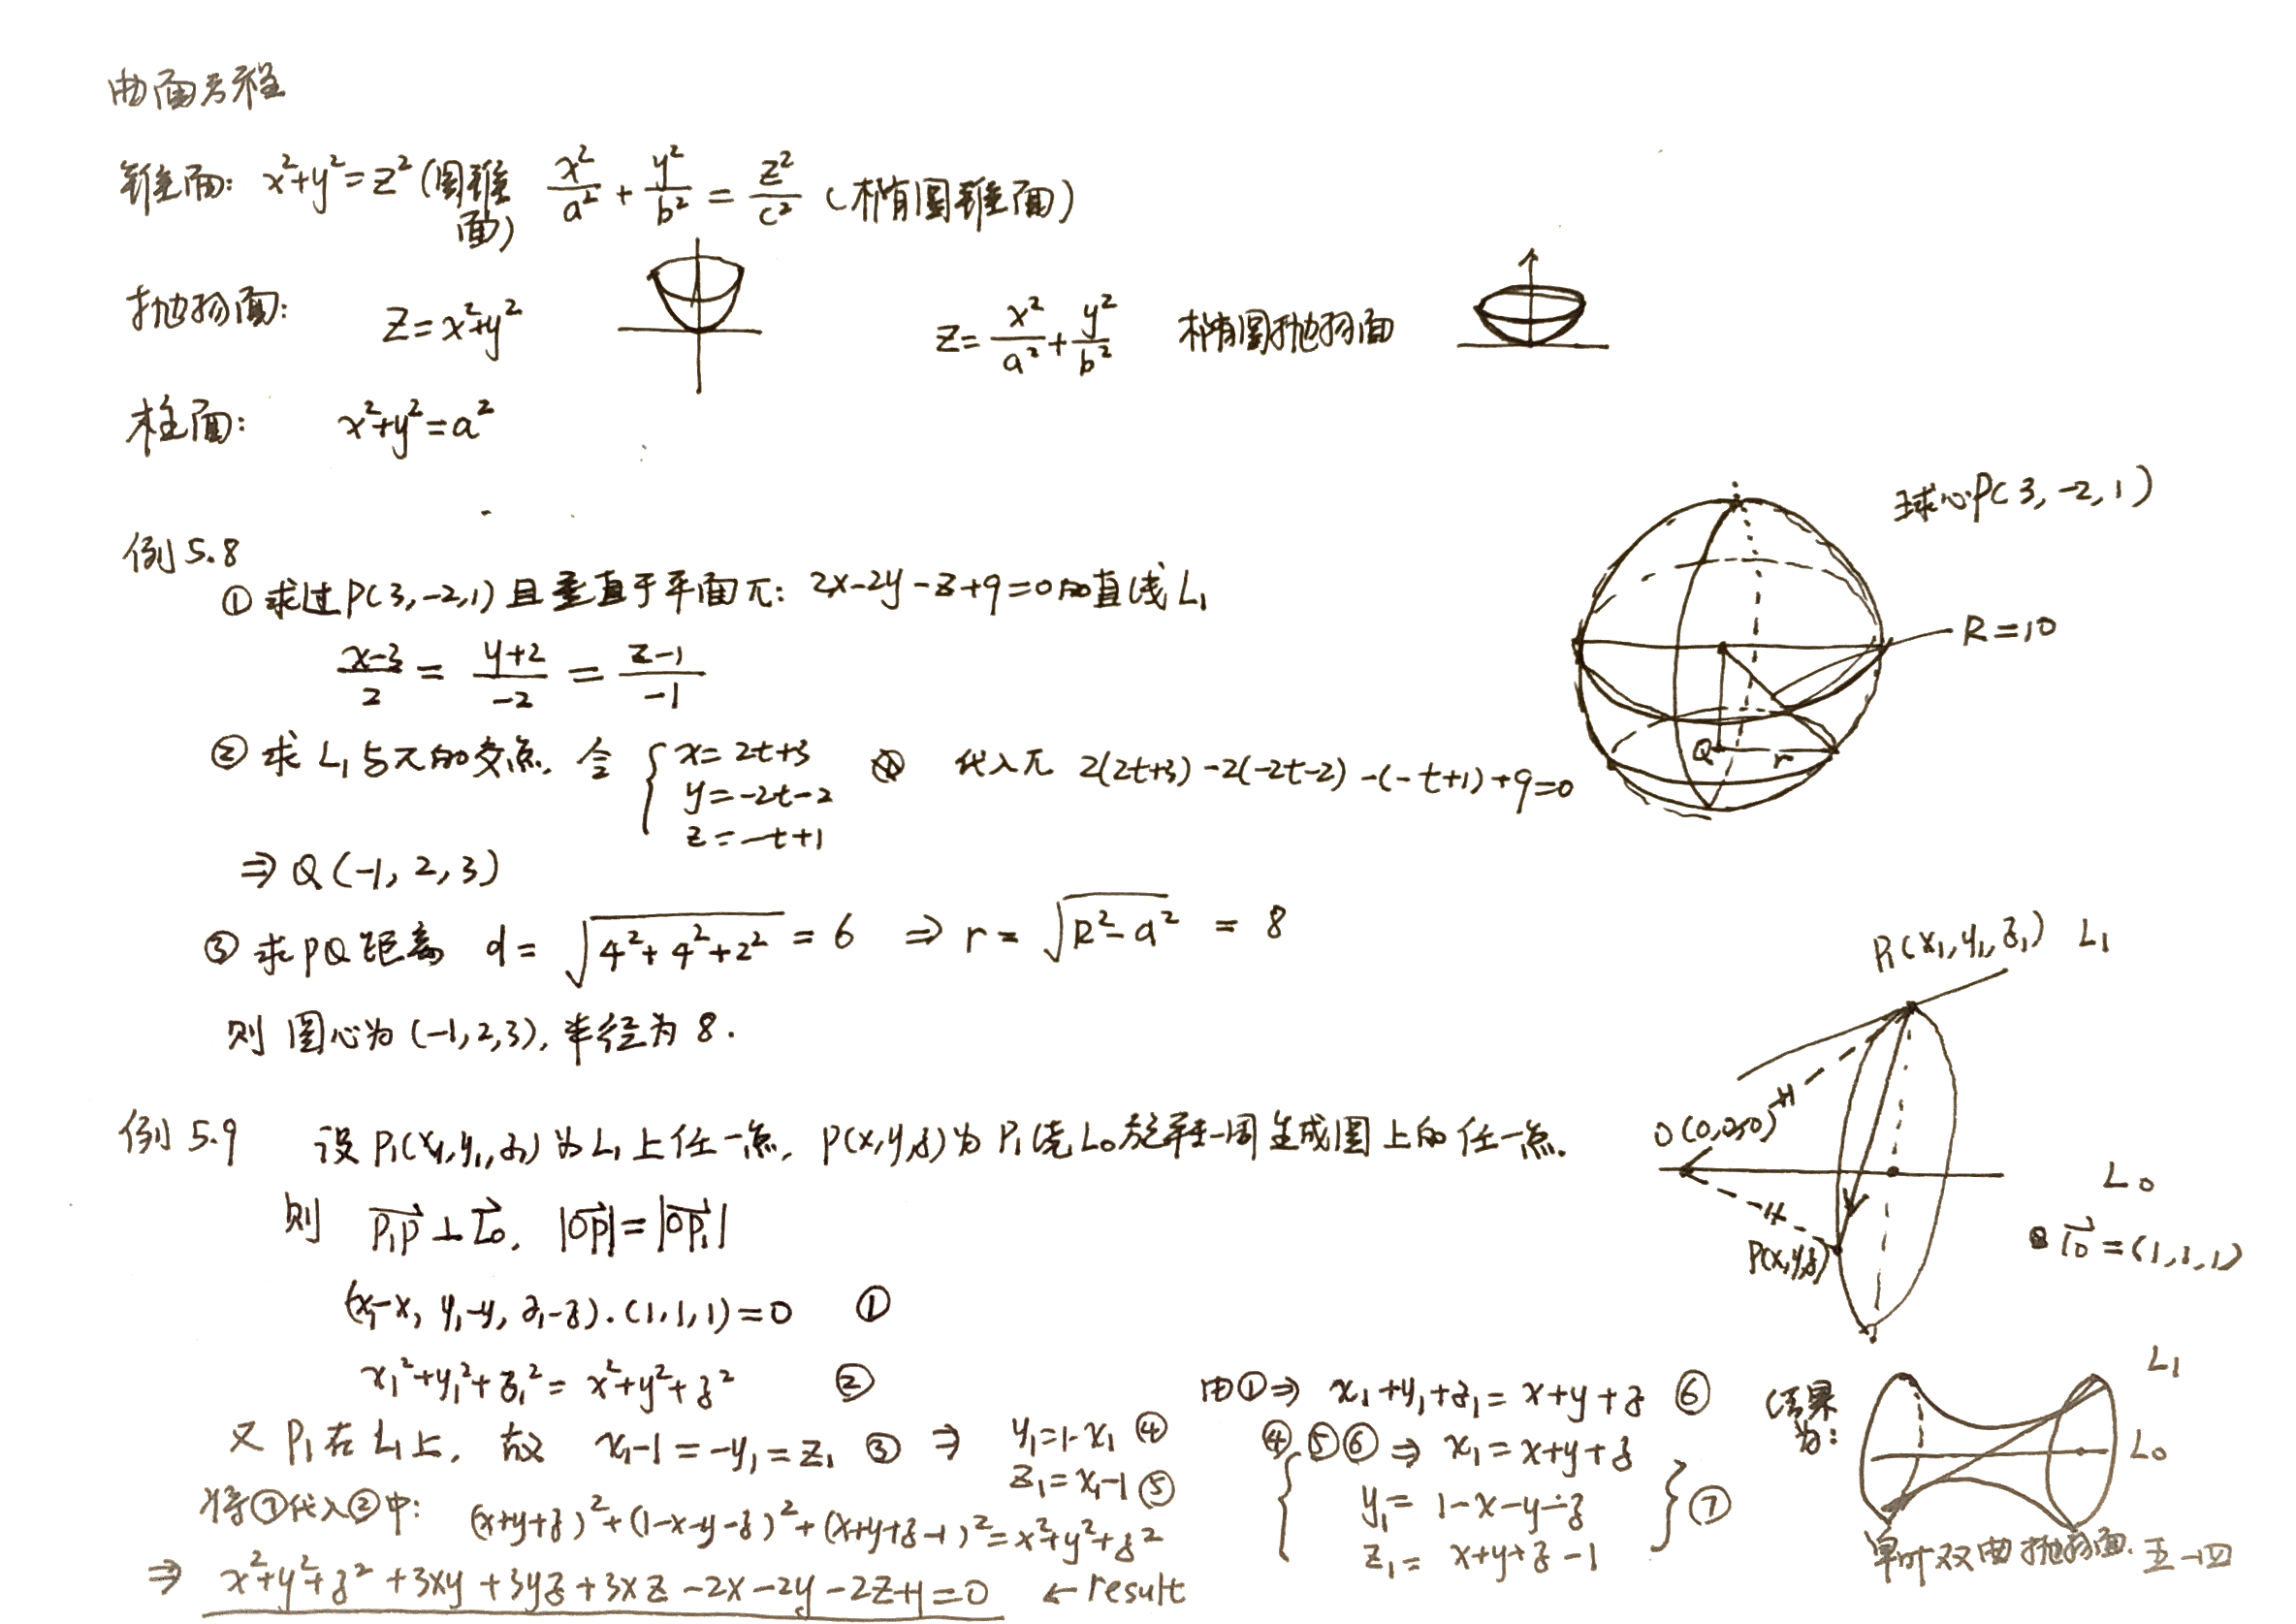 曲面方程
锥面: x²+y²=z² (圆锥面) x²/a² + y²/b² = z²/c² (椭圆锥面)
抛物面: z=x²+y² z= x²/a² + y²/b² 椭圆抛物面
柱面: x²+y²=a²
球心P(3,-2,1)
R=10
Q r
例5.8
① 求过P(3,-2,1)且垂直于平面π: 2x-2y-z+9=0的直线L₁
(x-3)/2 = (y+2)/-2 = (z-1)/-1
② 求L₁与π的交点. 令 { x=2t+3 y=-2t-2 z=-t+1 代入π 2(2t+3)-2(-2t-2)-(-t+1)+9=0
⇒ Q(-1,2,3)
③ 求PQ距离 d= √(4²+4²+2²) = 6 ⇒ r= √(R²-d²) = 8
则 圆心为(-1,2,3), 半径为8.
P₁(x₁,y₁,z₁) L₁
O(0,0,0)
L₀
P(x,y,z)
l₀=(1,1,1)
例5.9 设P₁(x₁,y₁,z₁)为L₁上任一点, P(x,y,z)为P₁绕L₀旋转一周生成圆上的任一点.
则 P₁P⊥l₀, |OP|=|OP₁|
(x₁-x, y₁-y, z₁-z)·(1,1,1)=0 ①
x₁²+y₁²+z₁²= x²+y²+z² ②
又P₁在L₁上, 故 x₁-1=-y₁=z₁ ③ ⇒ y₁=1-x₁ ④ z₁=x₁-1 ⑤
由①⇒ x₁+y₁+z₁=x+y+z ⑥
④⑤⑥ ⇒ { x₁=x+y+z
y₁= 1-x-y-z
z₁= x+y+z-1 } ⑦
将⑦代入②中: (x+y+z)²+(1-x-y-z)²+(x+y+z-1)²=x²+y²+z²
⇒ x²+y²+z²+3xy+3yz+3xz-2x-2y-2z+1=0 ← result
结果为:
L₁
L₀
单叶双曲抛物面.